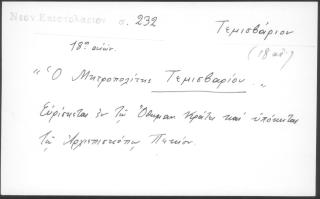 Νέον Επιστολάριον σ. 232
Τεμισβάριον
18ος αιών.
(18 αἰ.)
"Ὁ Μητροπολίτης Τεμισβαρίου."
Εὑρίσκεται ἐν τῷ Ὀθωμαν. Κράτει καὶ ὑπόκειται
τῷ Ἀρχιεπισκόπῳ Πεκίου.